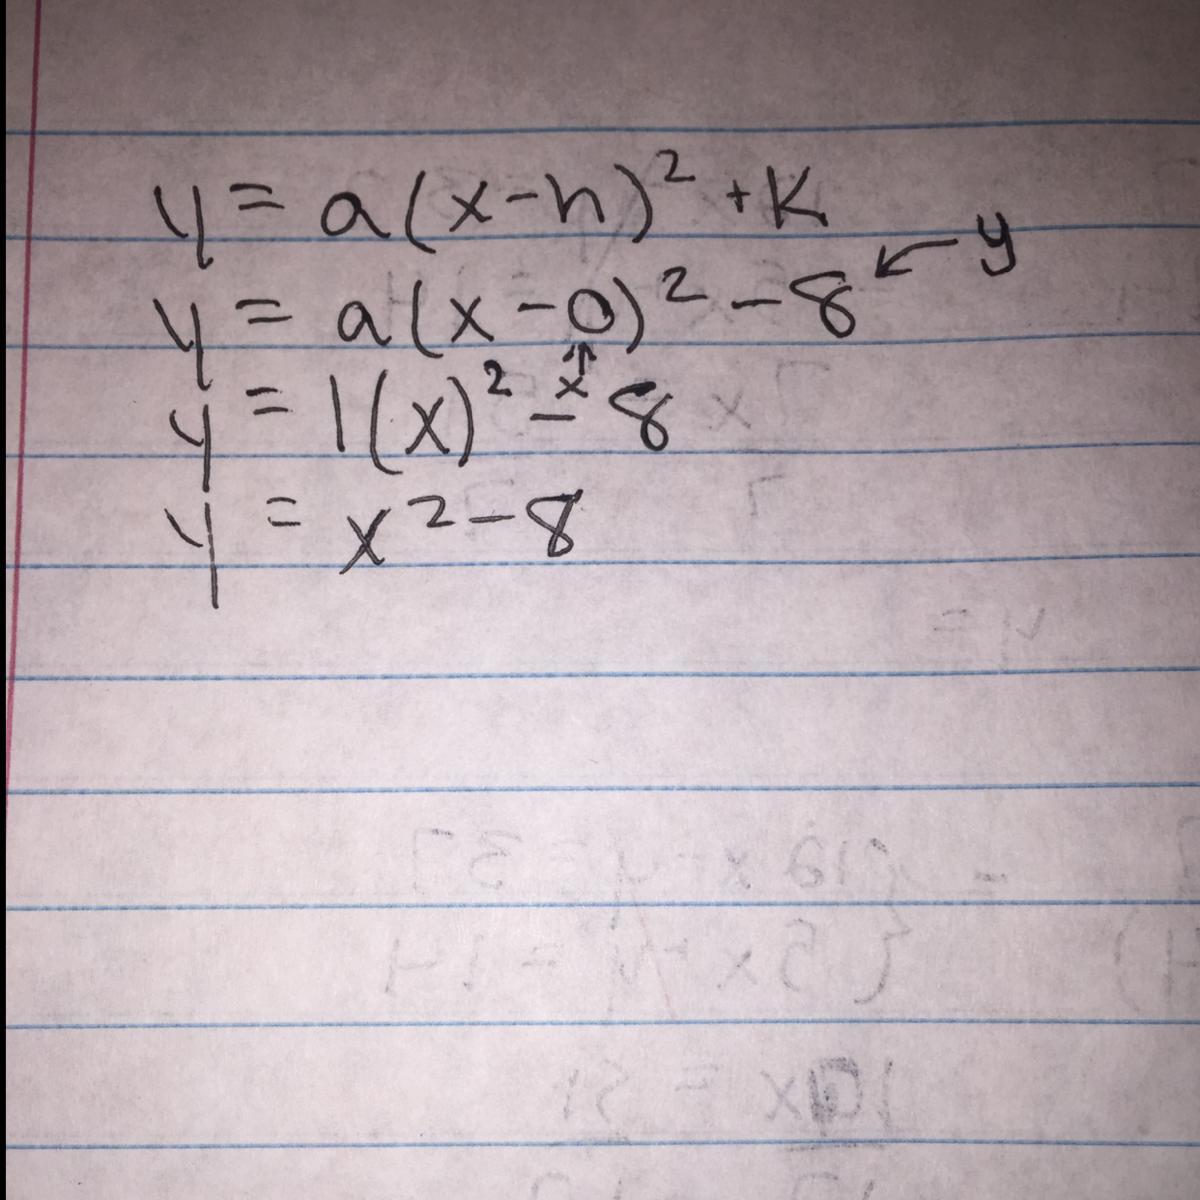 y = a(x-h)² + K
y = a(x-0)² - 8 ← y
↑
x
y = 1(x)² - 8
y = x² - 8